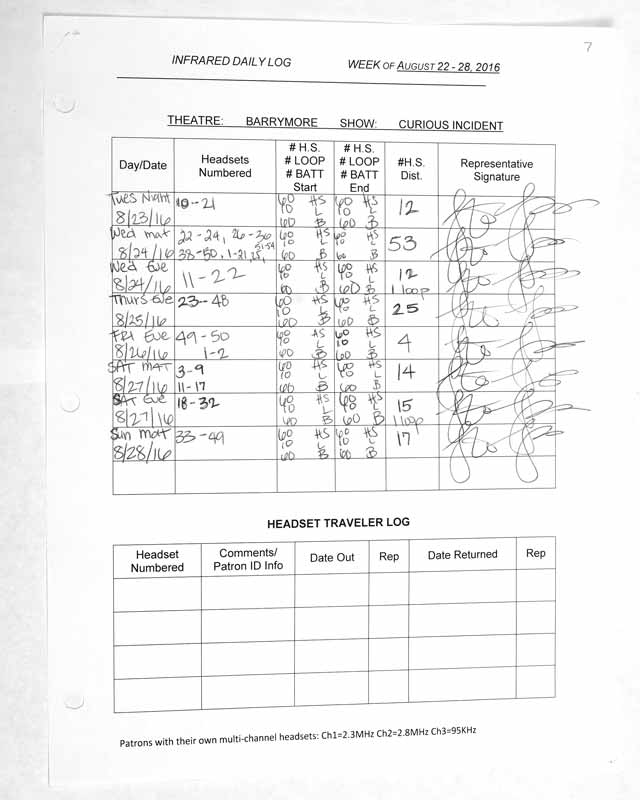 7
INFRARED DAILY LOG WEEK OF AUGUST 22 - 28, 2016
THEATRE: BARRYMORE SHOW: CURIOUS INCIDENT
Day/Date
Headsets Numbered
# H.S. # LOOP # BATT Start
# H.S. # LOOP # BATT End
#H.S. Dist.
Representative Signature
Tues Night 8/23/16 10-21 60 HS 10 L 60 B 60 HS 10 L 60 B 12
Wed mat 8/24/16 22-24, 26-36 38-50, 1-21, 25, 51-54 60 HS 10 L 60 B 60 HS 10 L 60 B 53
Wed Eve 8/24/16 11-22 60 HS 10 L 60 B 60 HS 10 L 60 B 12 1 loop
Thurs Eve 8/25/16 23-48 60 HS 10 L 60 B 60 HS 10 L 60 B 25
Fri Eve 8/26/16 49-50 1-2 60 HS 10 L 60 B 60 HS 10 L 60 B 4
SAT mat 8/27/16 3-9 11-17 60 HS 10 L 60 B 60 HS 10 L 60 B 14
SAT Eve 8/27/16 18-32 60 HS 10 L 60 B 60 HS 10 L 60 B 15 1 loop
Sun mat 8/28/16 33-49 60 HS 10 L 60 B 60 HS 10 L 60 B 17
HEADSET TRAVELER LOG
Headset Numbered
Comments/ Patron ID Info
Date Out
Rep
Date Returned
Rep
Patrons with their own multi-channel headsets: Ch1=2.3MHz Ch2=2.8MHz Ch3=95KHz